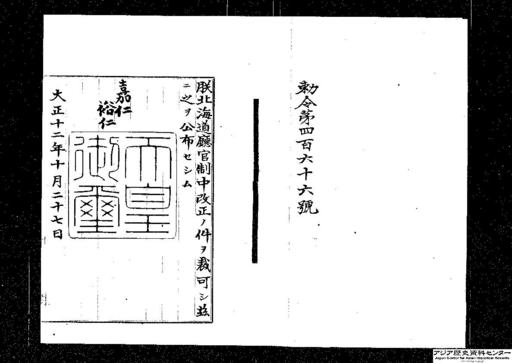 勅令第四百六十六號
朕北海道廳官制中改正ノ件ヲ裁可シ茲
ニ之ヲ公布セシム
嘉仁
裕仁
天皇
御璽
大正十二年十月二十七日
アジア歴史資料センター
Japan Center for Asian Historical Records